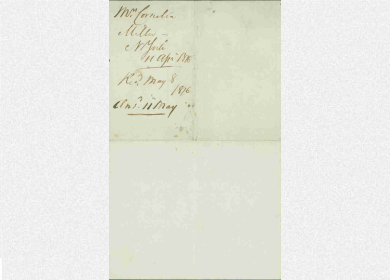 Mrs. Cornelia
Miller
N York
11 Apr 1876
Recd. May 8
1876
Ansd. 11 May